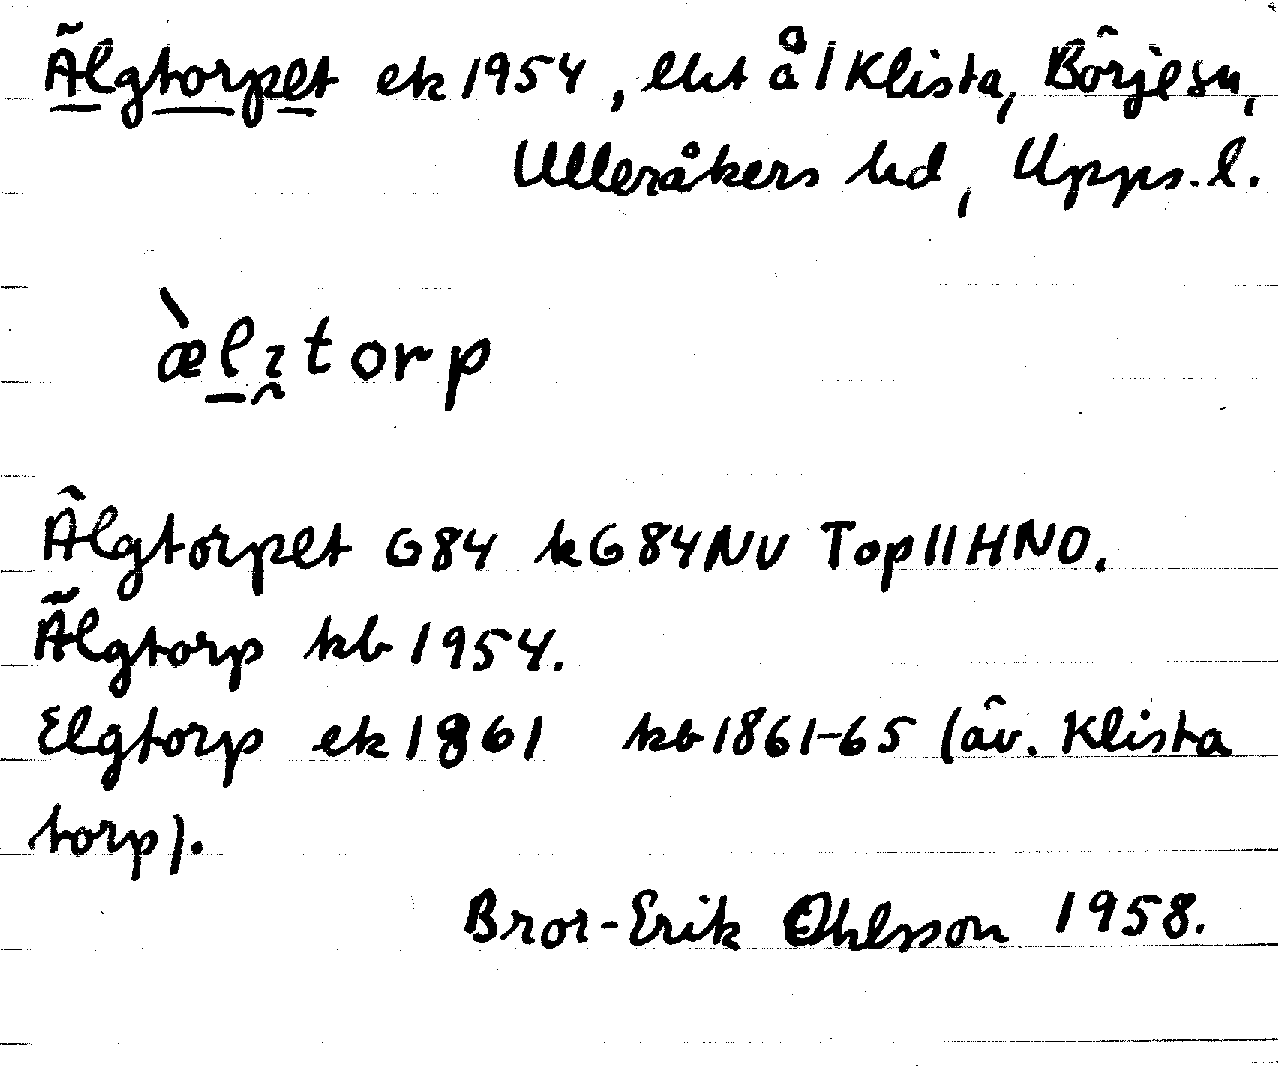 Älgtorpet ek 1954, lht å 1 Klista, Börje sn,
Ulleråkers hd, Upps. l.
Älgtorpet G84 kG84NV Top11HNO.
Älgtorp kb 1954.
Elgtorp ek 1861 kb 1861-65 (äv. Klista
torp).
Bror-Erik Ohlsson 1958.